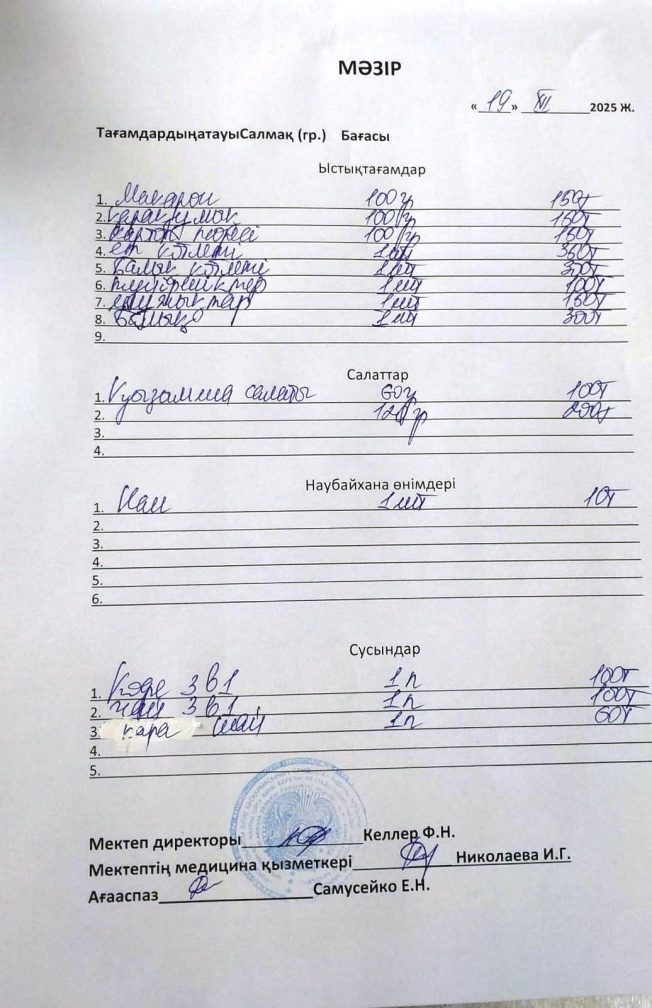 МӘЗІР
«19» XII 2025 Ж.
ТағамдардыңатауыСалмақ (гр.) Бағасы
Ыстықтағамдар
1. Макарон 100гр 150т
2. қарақұмық 100гр 150т
3. картоп пюресі 100гр 150т
4. ет котлеті 1шт 350т
5. Балық котлеті 1шт 300т
6. 1шт 100т
7. 1шт 150т
8. 1шт 300т
9.
Салаттар
1. Қызылша салаты 60гр 100т
2. 120гр 200т
3.
4.
Наубайхана өнімдері
1. Нан 1шт 10т
2.
3.
4.
5.
6.
Сусындар
1. Кофе 3в1 1п 100т
2. чай 3в1 1п 100т
3. қара шай 1п 60т
4.
5.
Мектеп директоры Келлер Ф.Н.
Мектептің медицина қызметкері Николаева И.Г.
Ағааспаз Самусейко Е.Н.